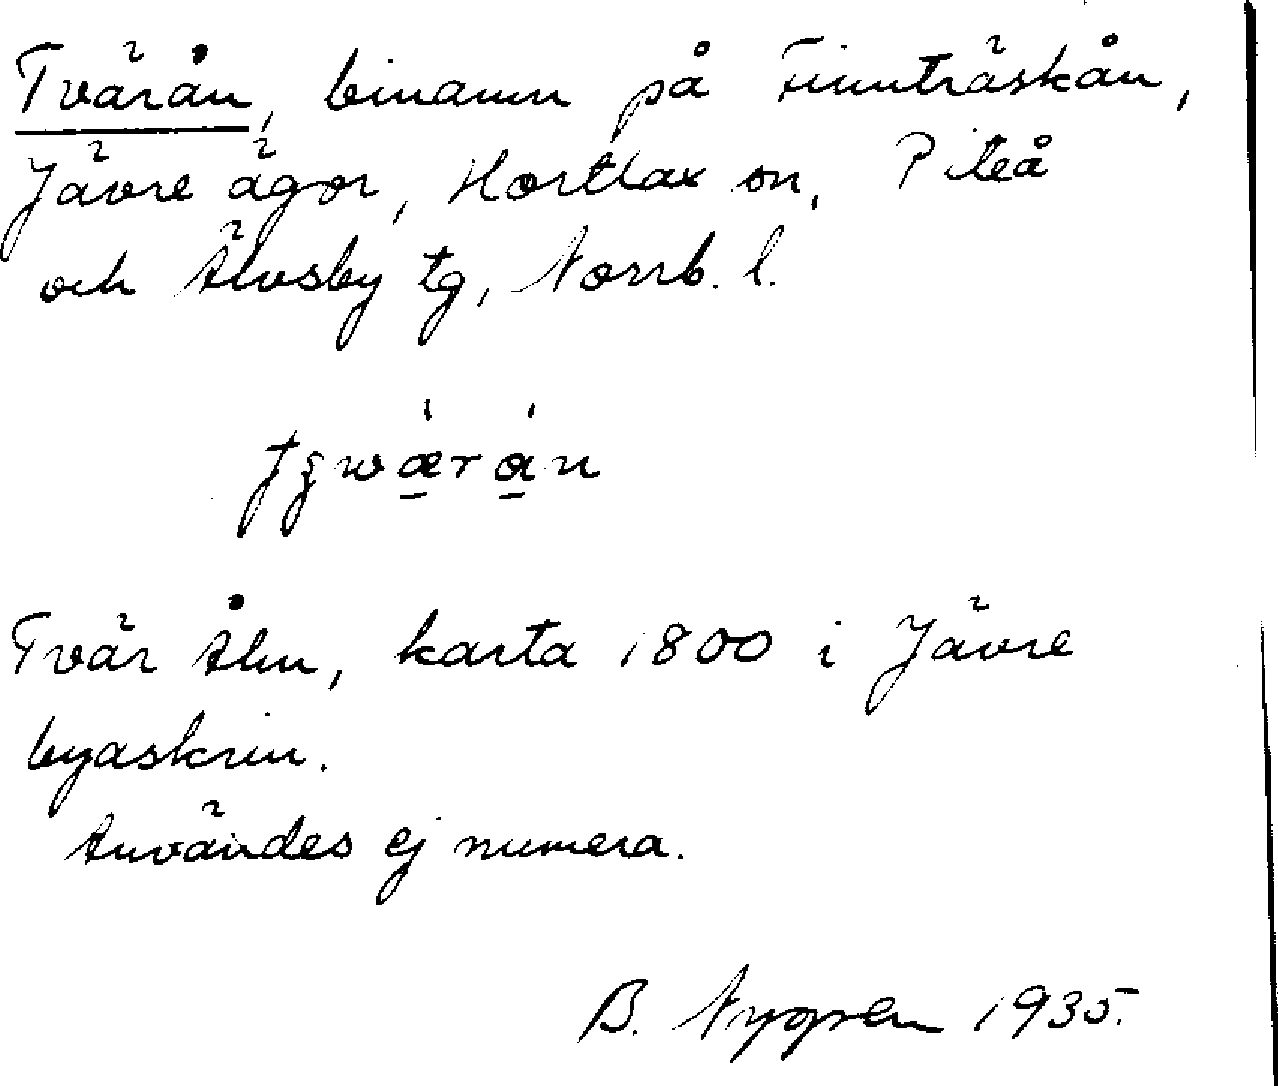 Tvärån, binamn på Finnträskån,
Jävre ägor, Hortlax sn, Piteå
och Älvsby tg, Norrb. l.
Tvär Åhn, karta 1800 i Jävre
byaskrin.
Användes ej numera.
B. Nygren 1935.